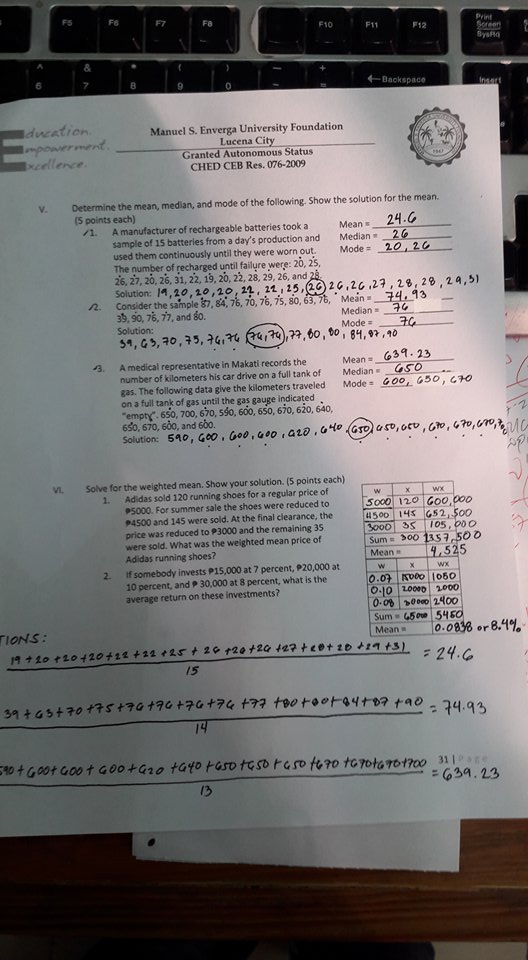 F5 F6 F7 F8 F10 F11 F12 Print Screen SysRq
^ 6 & 7 * 8 ( 9 ) 0 - + = ← Backspace Insert
Education.
Empowerment.
Excellence.
Manuel S. Enverga University Foundation
Lucena City
Granted Autonomous Status
CHED CEB Res. 076-2009
V. Determine the mean, median, and mode of the following. Show the solution for the mean.
(5 points each)
1. A manufacturer of rechargeable batteries took a Mean = 24.6
sample of 15 batteries from a day's production and Median = 26
used them continuously until they were worn out. Mode = 20, 26
The number of recharged until failure were: 20, 25,
26, 27, 20, 26, 31, 22, 19, 20, 22, 28, 29, 26, and 28.
Solution: 19, 20, 20, 20, 22, 22, 25, 26, 26, 26, 27, 28, 28, 29, 31
2. Consider the sample 87, 84, 76, 70, 76, 75, 80, 63, 76, Mean = 74.93
39, 90, 76, 77, and 80. Median = 76
Solution: Mode = 76
39, 63, 70, 75, 76, 76, 76, 76, 77, 80, 80, 84, 87, 90
3. A medical representative in Makati records the Mean = 639.23
number of kilometers his car drive on a full tank of Median = 650
gas. The following data give the kilometers traveled Mode = 600, 650, 670
on a full tank of gas until the gas gauge indicated
"empty". 650, 700, 670, 590, 600, 650, 670, 620, 640,
650, 670, 600, and 600.
Solution: 590, 600, 600, 600, 620, 640, 650, 650, 650, 670, 670, 670,
VI. Solve for the weighted mean. Show your solution. (5 points each)
1. Adidas sold 120 running shoes for a regular price of
₱5000. For summer sale the shoes were reduced to
₱4500 and 145 were sold. At the final clearance, the
price was reduced to ₱3000 and the remaining 35
were sold. What was the weighted mean price of
Adidas running shoes?
W X WX
5000 120 600,000
4500 145 652,500
3000 35 105,000
Sum = 300 1357,500
Mean = 4,525
2. If somebody invests ₱15,000 at 7 percent, ₱20,000 at
10 percent, and ₱ 30,000 at 8 percent, what is the
average return on these investments?
W X WX
0.07 15000 1050
0.10 20000 2000
0.08 30000 2400
Sum = 65000 5450
Mean = 0.0838 or 8.4%
TIONS:
19+20+20+20+22+22+25+26+26+26+27+28+28+29+31 = 24.6
15
39+63+70+75+76+76+76+76+77+80+80+84+87+90 = 74.93
14
590+600+600+600+620+640+650+650+650+670+670+670+700 = 639.23
13
31 | Page